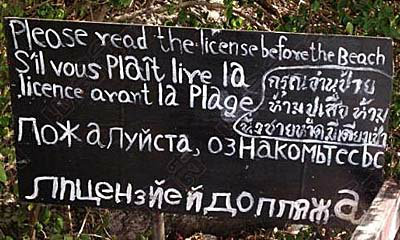 Please read the license before the Beach
S'il vous Plaît livre la
licence avant la Plage
กรุณาอ่านป้าย
ห้ามปูเสื่อ ห้าม
Пожалуйста, ознакомьтесь
лицензйей до пляжа